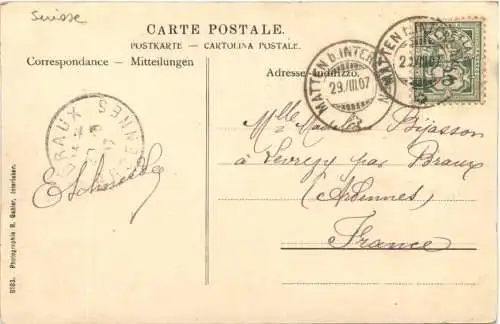 Suisse
CARTE POSTALE.
POSTKARTE — CARTOLINA POSTALE.
Correspondance — Mitteilungen
Adresse-Indirizzo.
MATTEN b. INTERLAKEN
29.III.07
MATTEN b. INTER
29.III.07
HELVETIA
5
BRAUX
ARDENNES
Mlle Madeleine Bijasson
à Levrezy par Braux
(Ardennes)
France
9163. Photographie R. Gabler, Interlaken.